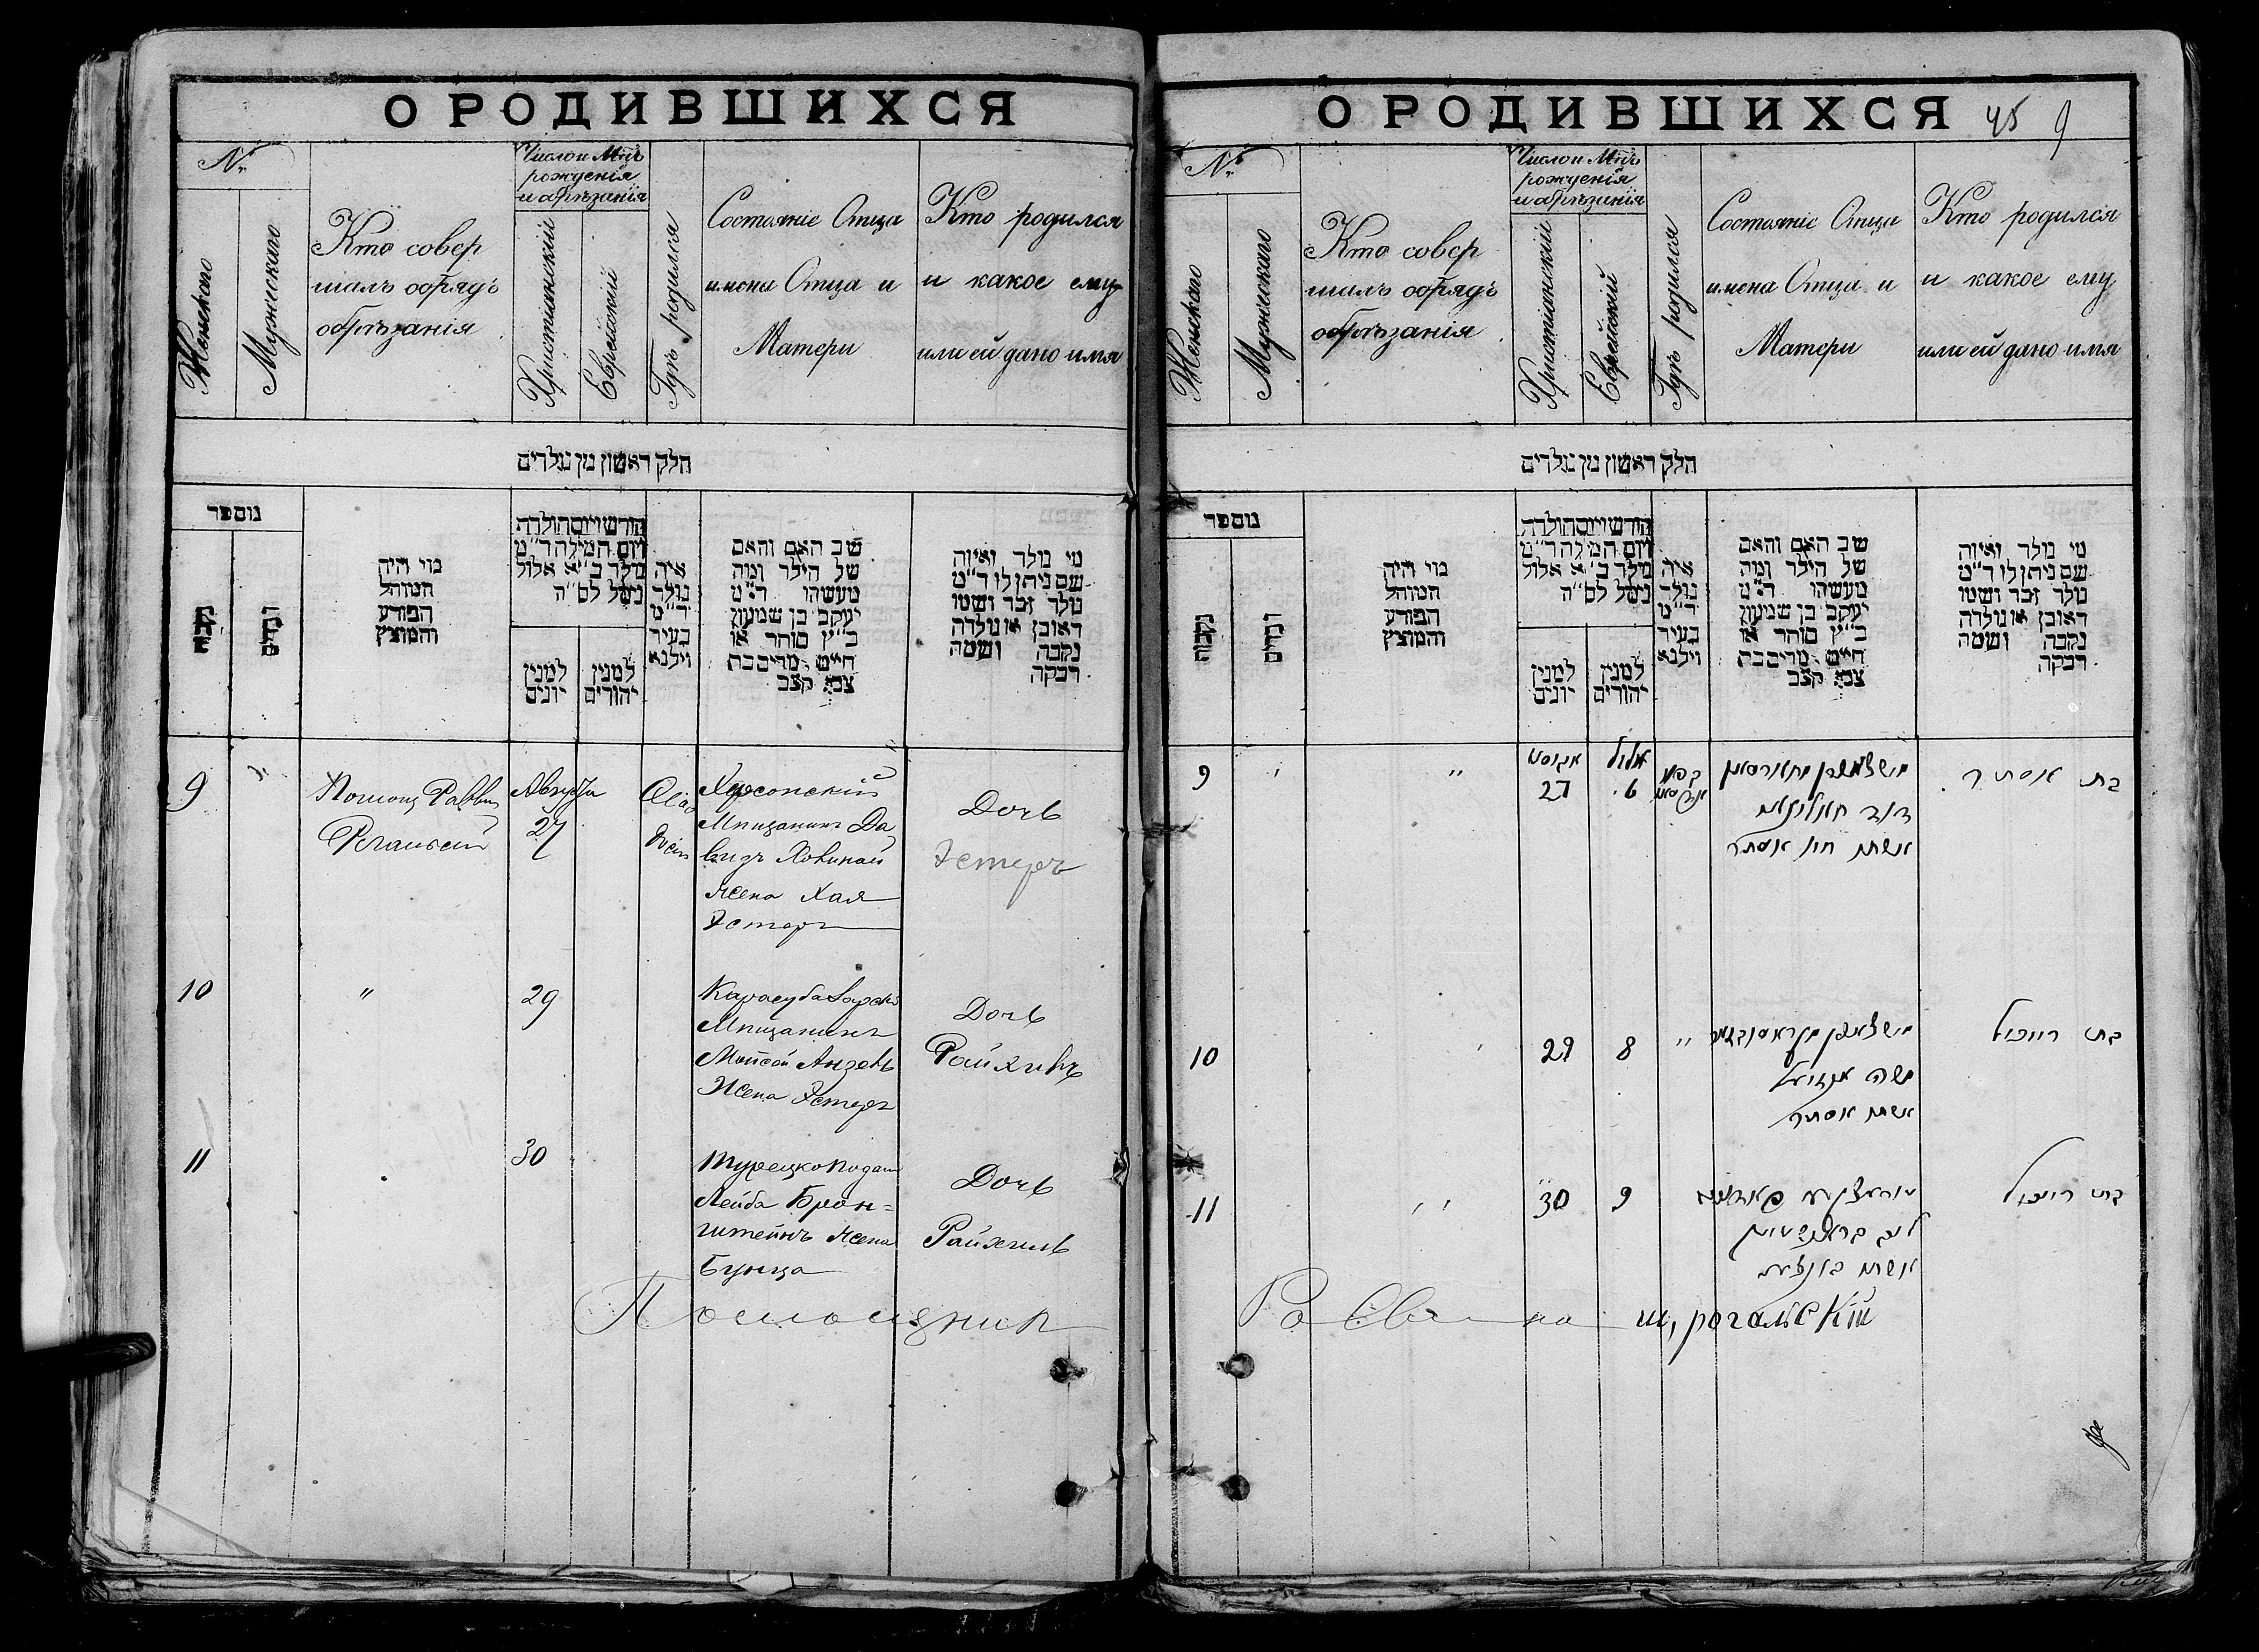 О РОДИВШИХСЯ
№
Женскаго
Мужескаго
Кто совер
шалъ обрядъ
обрѣзанія
Число и Мпъ
рожденія
и обрѣзанія
Христіанскій
Еврейскій
Гдѣ родился
Состояніе Отца
имена Отца и
Матери
Кто родился
и какое ему
или ей дано имя
חלק ראשון מן נולדים
מספר
נקבות
זכרים
מי היה
המוהל
הפורע
והמוצץ
חודש ויום הולדת
ויום המילה ד"מ
נולד ב"א אלול
נימל לס"ה
למנין
יונים
למנין
יהודים
איה
נולד
ד"מ
בעיר
וילנא
שב האם והאם
של הילד ומה
מעשהו ד"מ
יעקב בן שמעון
כ"ץ סוחר או
חייט מרים בת
צבי קצב
מי נולד ואיזה
שם ניתן לו ד"מ
נולד זכר ושמו
ראובן או נולדה
נקבה ושמה
רבקה
9
Помощ Равви
Августа
27
Херсонскій
Мѣщанинъ Да
видъ
жена Хая
Эстеръ
Дочь
Эстеръ
10
"
29
Мѣщанинъ
Мойсей
Жена Эстеръ
Дочь
11
30
Лейба Брон=
штейнъ жена
Бунца
Дочь
Райхиль
Помощник
О РОДИВШИХСЯ 45 9
№
Женскаго
Мужескаго
Кто совер
шалъ обрядъ
обрѣзанія
Число и Мпъ
рожденія
и обрѣзанія
Христіанскій
Еврейскій
Гдѣ родился
Состояніе Отца
имена Отца и
Матери
Кто родился
и какое ему
или ей дано имя
חלק ראשון מן נולדים
מספר
נקבות
זכרים
מי היה
המוהל
הפורע
והמוצץ
חודש ויום הולדת
ויום המילה ד"מ
נולד ב"א אלול
נימל לס"ה
למנין
יונים
למנין
יהודים
איה
נולד
ד"מ
בעיר
וילנא
שב האם והאם
של הילד ומה
מעשהו ד"מ
יעקב בן שמעון
כ"ץ סוחר או
חייט מרים בת
צבי קצב
מי נולד ואיזה
שם ניתן לו ד"מ
נולד זכר ושמו
ראובן או נולדה
נקבה ושמה
רבקה
9
"
אוגוסט
27
אלול
6
דוד
אשתו חיה אסתר
בת אסתר
10
29
8
"
משה
אשתו אסתר
בת רייכיל
11
30
9
ליב בראנשטיין
אשתו באנציע
בת רייכיל
Раввина Ш, рогальскій